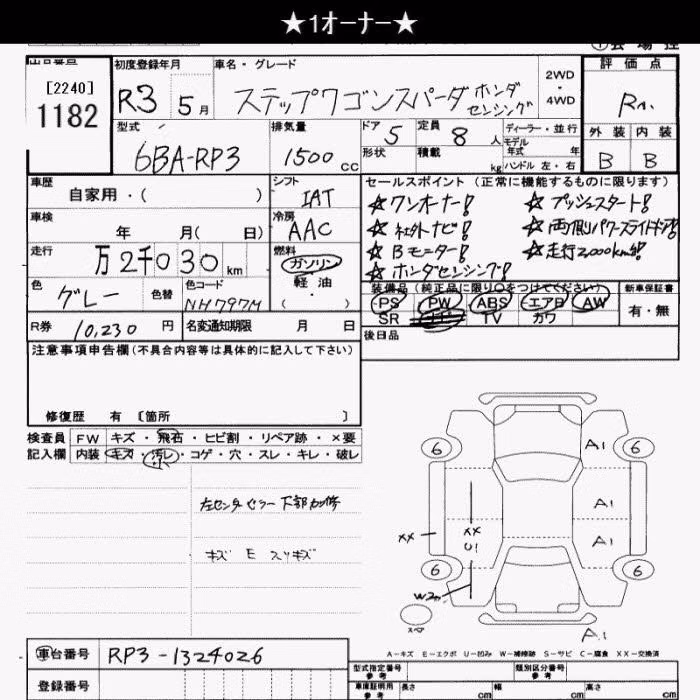 ★1オーナー★
[2240]
1182
初度登録年月
R3 5月
車名・グレード
ステップワゴンスパーダ ホンダセンシング
2WD
・
4WD
評価点
R
外装 内装
B B
型式
6BA-RP3
排気量
1500 cc
ドア 5
形状
定員 8 人
積載 kg
ディーラー・並行
モデル年式 年
ハンドル 左・右
車歴
自家用・( )
シフト
IAT
車検
年 月( 日)
冷房
AAC
走行
万2千030 km
燃料
ガソリン
軽油
・
( )
色
グレー
色替
色コード
NH797M
R券 10,230 円
名変通知期限 月 日
セールスポイント(正常に機能するものに限ります)
☆ワンオーナー!
☆社外ナビ!
☆Bモニター!
☆ホンダセンシング!
☆プッシュスタート!
☆両側パワースライドドア!
☆走行2,000km台!
装備品(純正品に限り○をつけてください)
PS PW ABS エアB AW
SR TV カワ
新車保証書
有・無
後日品
注意事項申告欄(不具合内容等は具体的に記入して下さい)
修復歴 有 〔箇所 〕
検査員記入欄
FW キズ・飛石・ヒビ割・リペア跡・×要
内装 キズ・汚レ・コゲ・穴・スレ・キレ・破レ
左センターピラー下部
キズ E スリキズ
6
A1
6
A1
XX
XX
U1
A1
6
W2
6
スペア
A1
A-キズ E-エクボ U-凹み W-補修跡 S-サビ C-腐食 XX-交換済
車台番号 RP3-1324026
登録番号
型式指定番号
参考
類別区分番号
参考
車庫証明用
参考
長さ cm
幅 cm
高さ cm